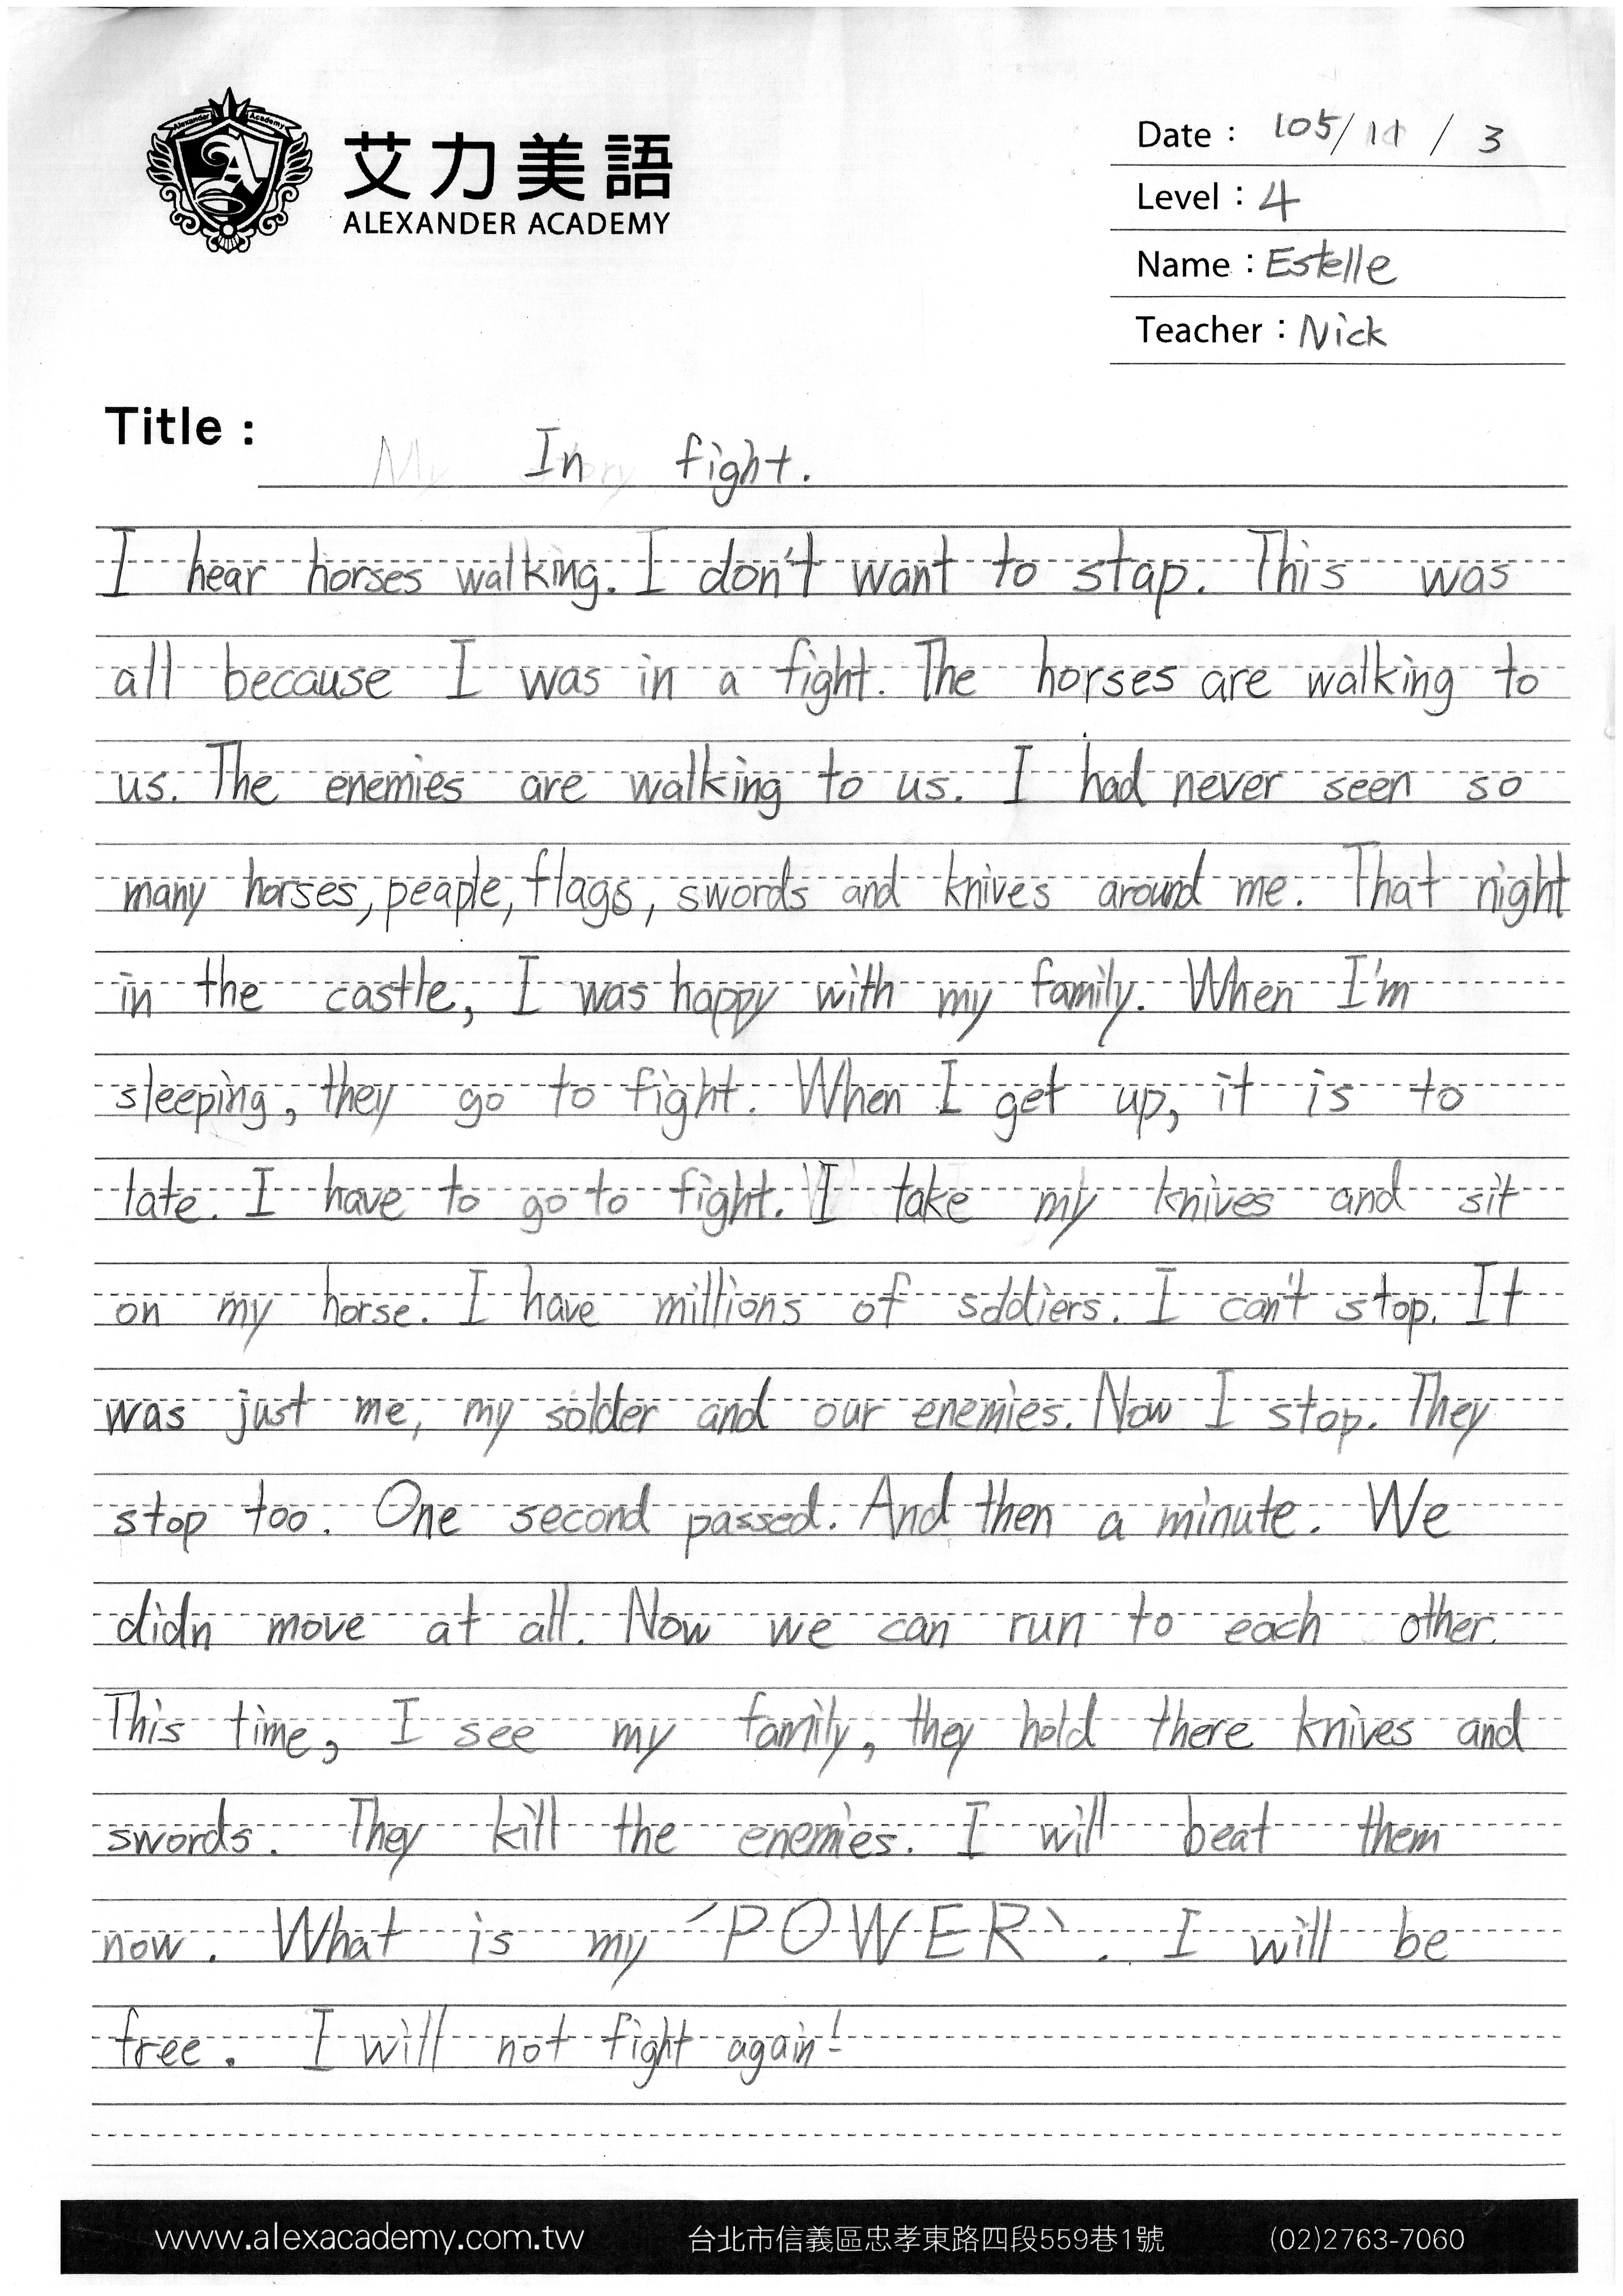 Alexander Academy
艾力美語
ALEXANDER ACADEMY
Date : 105/11/3
Level : 4
Name : Estelle
Teacher : Nick
Title : In fight.
I hear horses walking. I don't want to stap. This was
all because I was in a fight. The horses are walking to
us. The enemies are walking to us. I had never seen so
many horses, peaple, flags, swords and knives around me. That night
in the castle, I was happy with my family. When I'm
sleeping, they go to fight. When I get up, it is to
late. I have to go to fight. I take my knives and sit
on my horse. I have millions of soldiers. I can't stop. It
was just me, my solder and our enemies. Now I stop. They
stop too. One second passed. And then a minute. We
didn move at all. Now we can run to each other.
This time, I see my family, they hold there knives and
swords. They kill the enemies. I will beat them
now. What is my "POWER". I will be
free. I will not fight again!
www.alexacademy.com.tw 台北市信義區忠孝東路四段559巷1號 (02)2763-7060